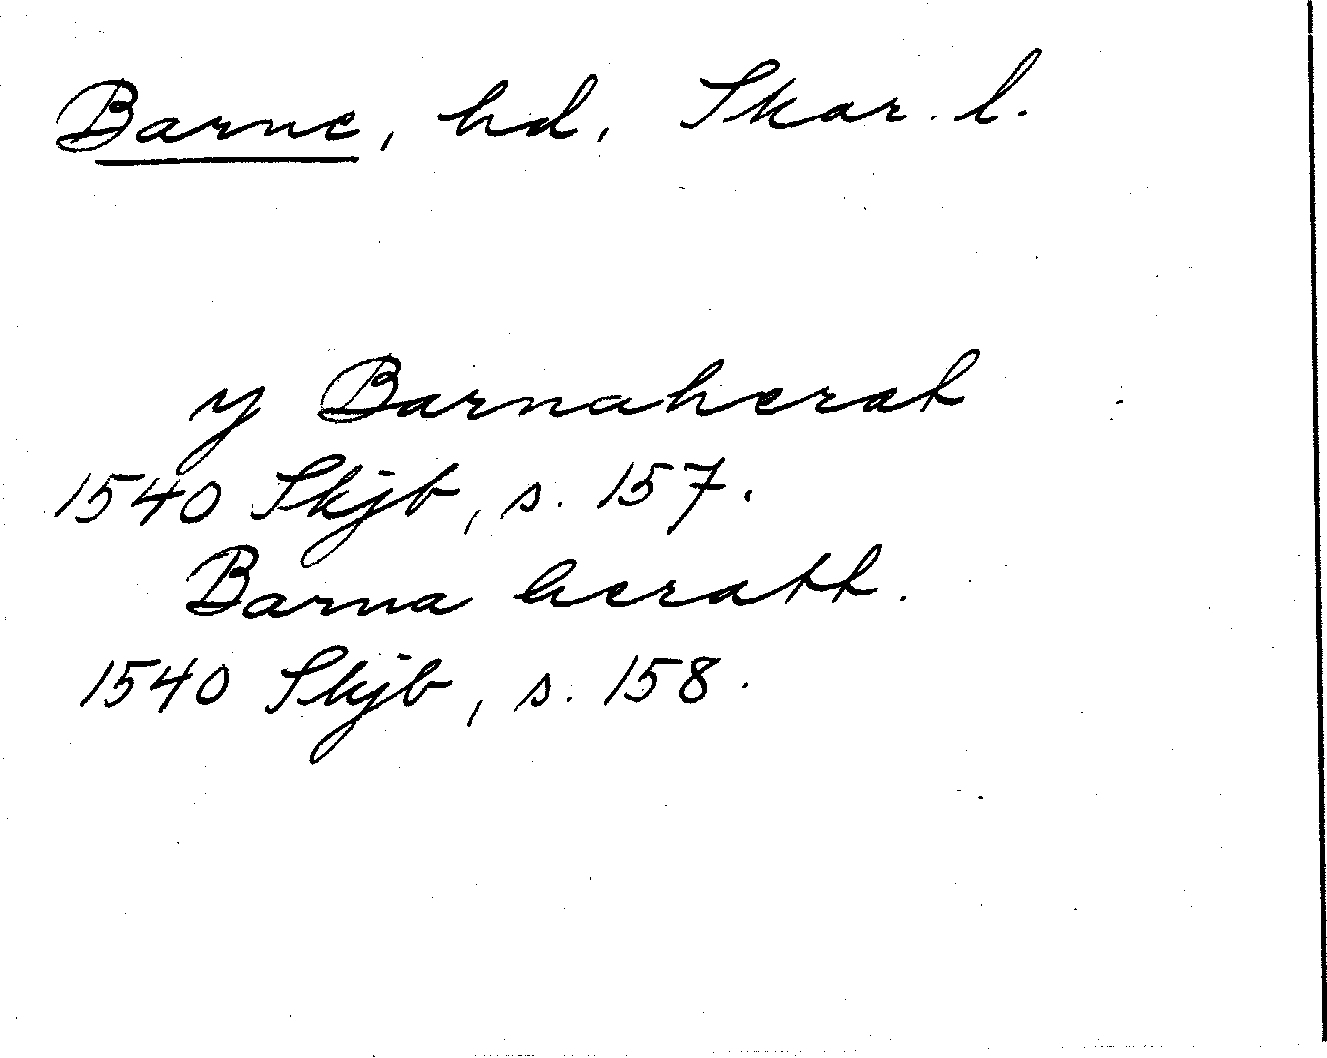 Barne, hd, Skar. l.
y Barnaherat
1540 Skjb, s. 157.
Barna heratt.
1540 Skjb, s. 158.